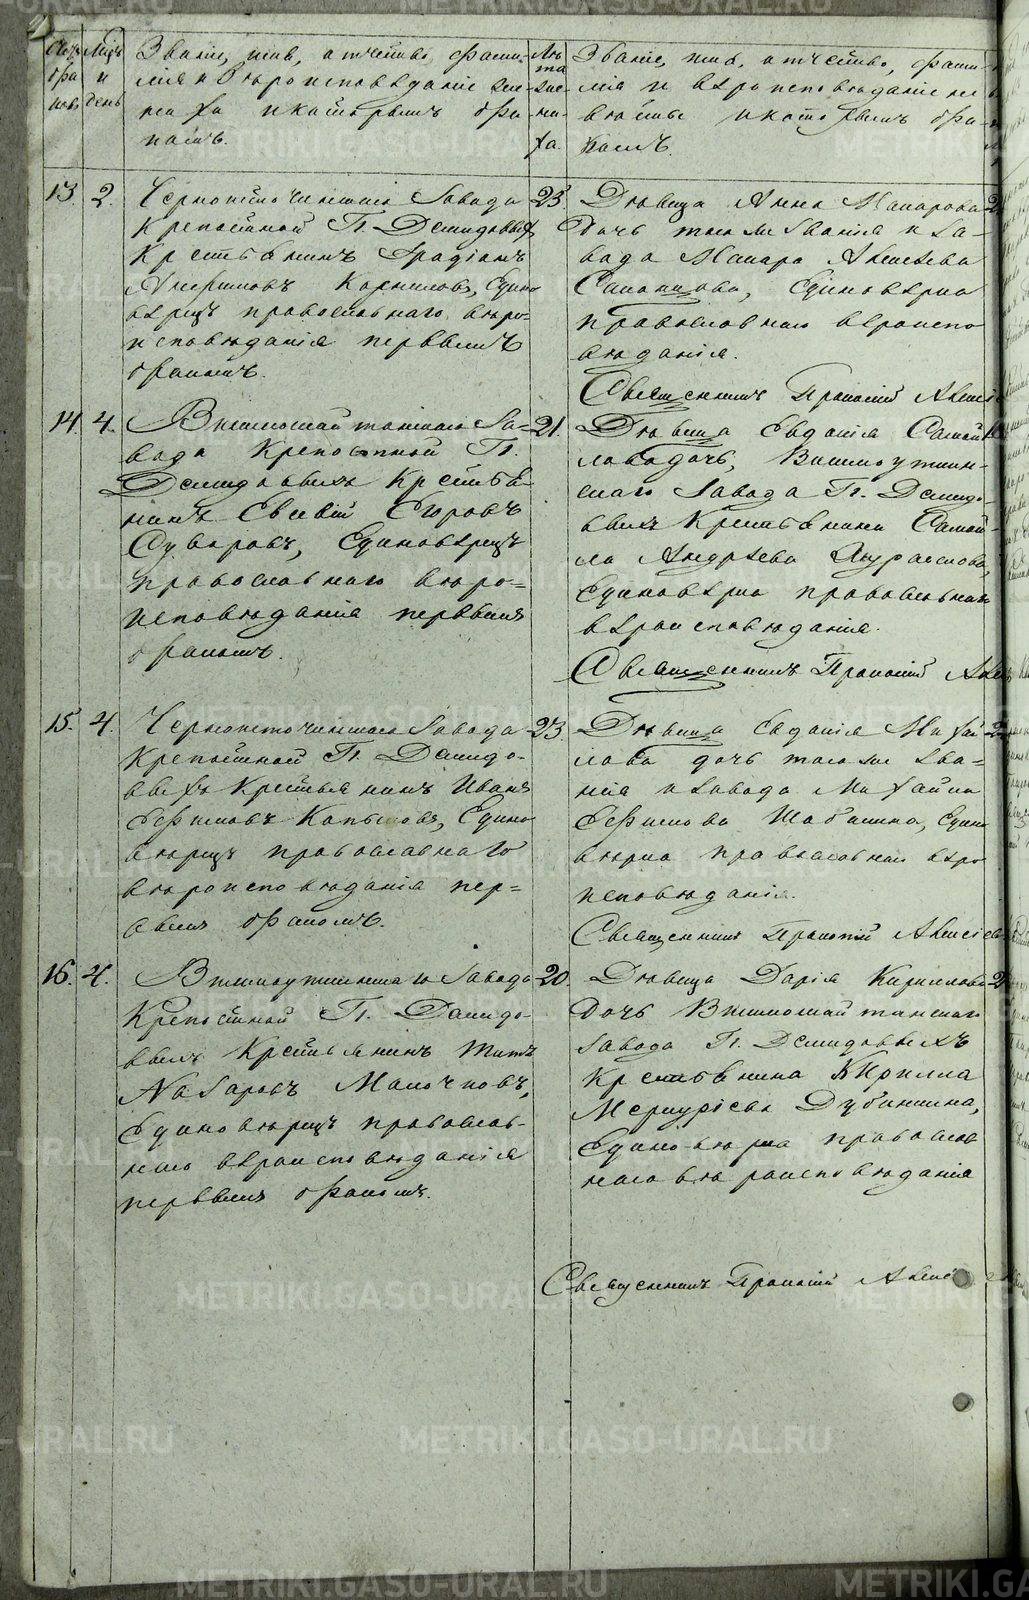 Счъ бра ковъ
Мцъ и день
Званіе, имя, отчество, фами-
лія и вѣроисповѣданіе же-
ниха и которымъ бра
комъ.
Лѣ та же ни- ха.
Званіе, имя, отчество, фами-
лія и вѣроисповѣданіе не
вѣсты и которымъ бра-
комъ.
13. 2. Черноисточинскаго Завода
Крепостной Гг. Демидовыхъ
Крестьянинъ Родіонъ
Корниловъ, Едино
вѣрецъ православнаго вѣро-
исповѣданія первымъ
бракомъ.
23.
Дѣвица Анна Макарова
дочь того же званія и за-
вода Макара Алексѣева
Единовѣрка
православнаго вѣроиспо
вѣданія.
Священникъ Прокопій
14. 4. Висимошайтанскаго За-
вода Крепостной Гг.
Демидовыхъ Крестья
нинъ Евсевій Егоровъ
Суворовъ, Единовѣрецъ
православнаго вѣро-
исповѣданія первымъ
бракомъ.
21.
Дѣвица Евдокія Самой
лова дочь, Висимоуткин-
скаго Завода Гг. Демидо
выхъ Крестьянина Самой-
ла Андрѣева
Единовѣрка православнаго
вѣроисповѣданія.
Священникъ Прокопій
15. 4. Черноисточинскаго Завода
Крепостной Гг. Демидо-
выхъ Крестьянинъ Иванъ
Ефимовъ Копыловъ, Едино
вѣрецъ православнаго
вѣроисповѣданія пер-
вымъ бракомъ.
23
Дѣвица Евдокія Михай
лова дочь того же зва-
нія и завода Михайла
Ефимова Шабалина, Едино
вѣрка православнаго вѣро
исповѣданія.
Священникъ Прокопій
16. 4. Висимоуткинскаго Завода
Крепостной Гг. Демидо-
выхъ Крестьянинъ Титъ
Назаровъ Молочковъ,
Единовѣрецъ православ-
наго вѣроисповѣданія
первымъ бракомъ.
20.
Дѣвица Дарія Кириллова
дочь Висимошайтанскаго
завода Гг. Демидовыхъ
Крестьянина Кирилла
Меркурьева Дубинкина,
Единовѣрка православ
наго вѣроисповѣданія
Священникъ Прокопій
METRIKI.GASO-URAL.RU